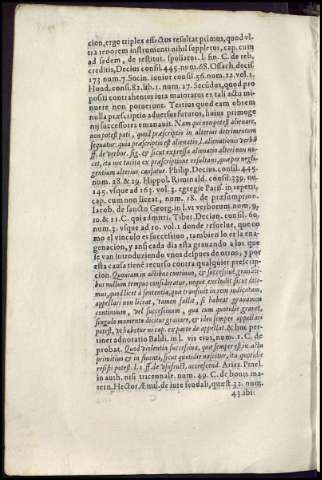 cion, ergo triplex effectus resultat primus, quod vl-
tra tenorem instrumenti nihil suppletur, cap. cum
ad sedem, de restitut. spoliator. l. fin. C. de reb.
creditis, Decius consil. 445. num. 68. Osasch. decis.
173 num. 7. Socin. iunior consil. 56. num. 22. vol. 1.
Hond. consi. 82. lib. 1. num. 27. Secũdus, quod pro
positi contrahentes ista maioratus ex tali actu mi
nuere non potuerunt. Tertius quod eam obrem
nulla præscriptio aduersus futuros, huius primoge
nij successores emanauit. Nam qui non potest alienare,
non potest pati, quod præscriptio in alterius detrimentum
sequatur, quia præscriptio est alienatio, l. alienationis verbũ
ff. de verbor. sig. & sicut expressa alienatio alteri non no-
cet, ita nec tacita ex præscriptione resultans, quæ per negli-
gentiam alterius causatur. Philip. Decius consil. 445.
num. 28. & 29. Hippol. Riminald. consil. 339. nu.
145. vsque ad 163. vol. 3. egregie Parisi. in repetit.
cap. cum non liceat, num. 18. de præscription.
Iacob. de sancto Georg. in l. vt verborum, num. 9.
10. & 11. C. qui admitti. Tiber. Decian. consil. 60.
num. 3. vsque ad 10. vol. 1 donde resuelue, que co
mo el vinculo es successiuo, tambien lo es la ena-
genacion, y ansi cada dia esta grauando a los que
se van introduziendo vnos despues de otros, y por
esta causa tiene recurso contra qualquier prescrip-
cion. Quoniam in actibus continuis, & successiuè grauãti-
bus nullum tempus consideratur, neque excludit sicut dici-
mus, quod licet à sententia, quæ transiuit in rem iudicatam,
appellari non liceat, tamen fallit, si habeat grauamen
continuum, vel successiuum, quia cum quotidie grauet,
singulo momento dicitur grauare, & ideo semper appellari
potest, vt habetur in cap. ex parte de appellat. & huc per-
tinet adnotatio Baldi. in l. vis eius, num. 1. C. de
probat. Quod violentia successiua, quæ semper est in actu
primitiuo & in fluenti, sicut quotidie nascitur, ita quotidie
resisti potest. l. 1. ff. de vsufruct. accrescend. Aries. Pinel.
in auth. nisi tricennale. num. 49. C. de bonis ma-
tern. Hector Æmil. de iure feudali, quæst. 32. num.
43. ibi: